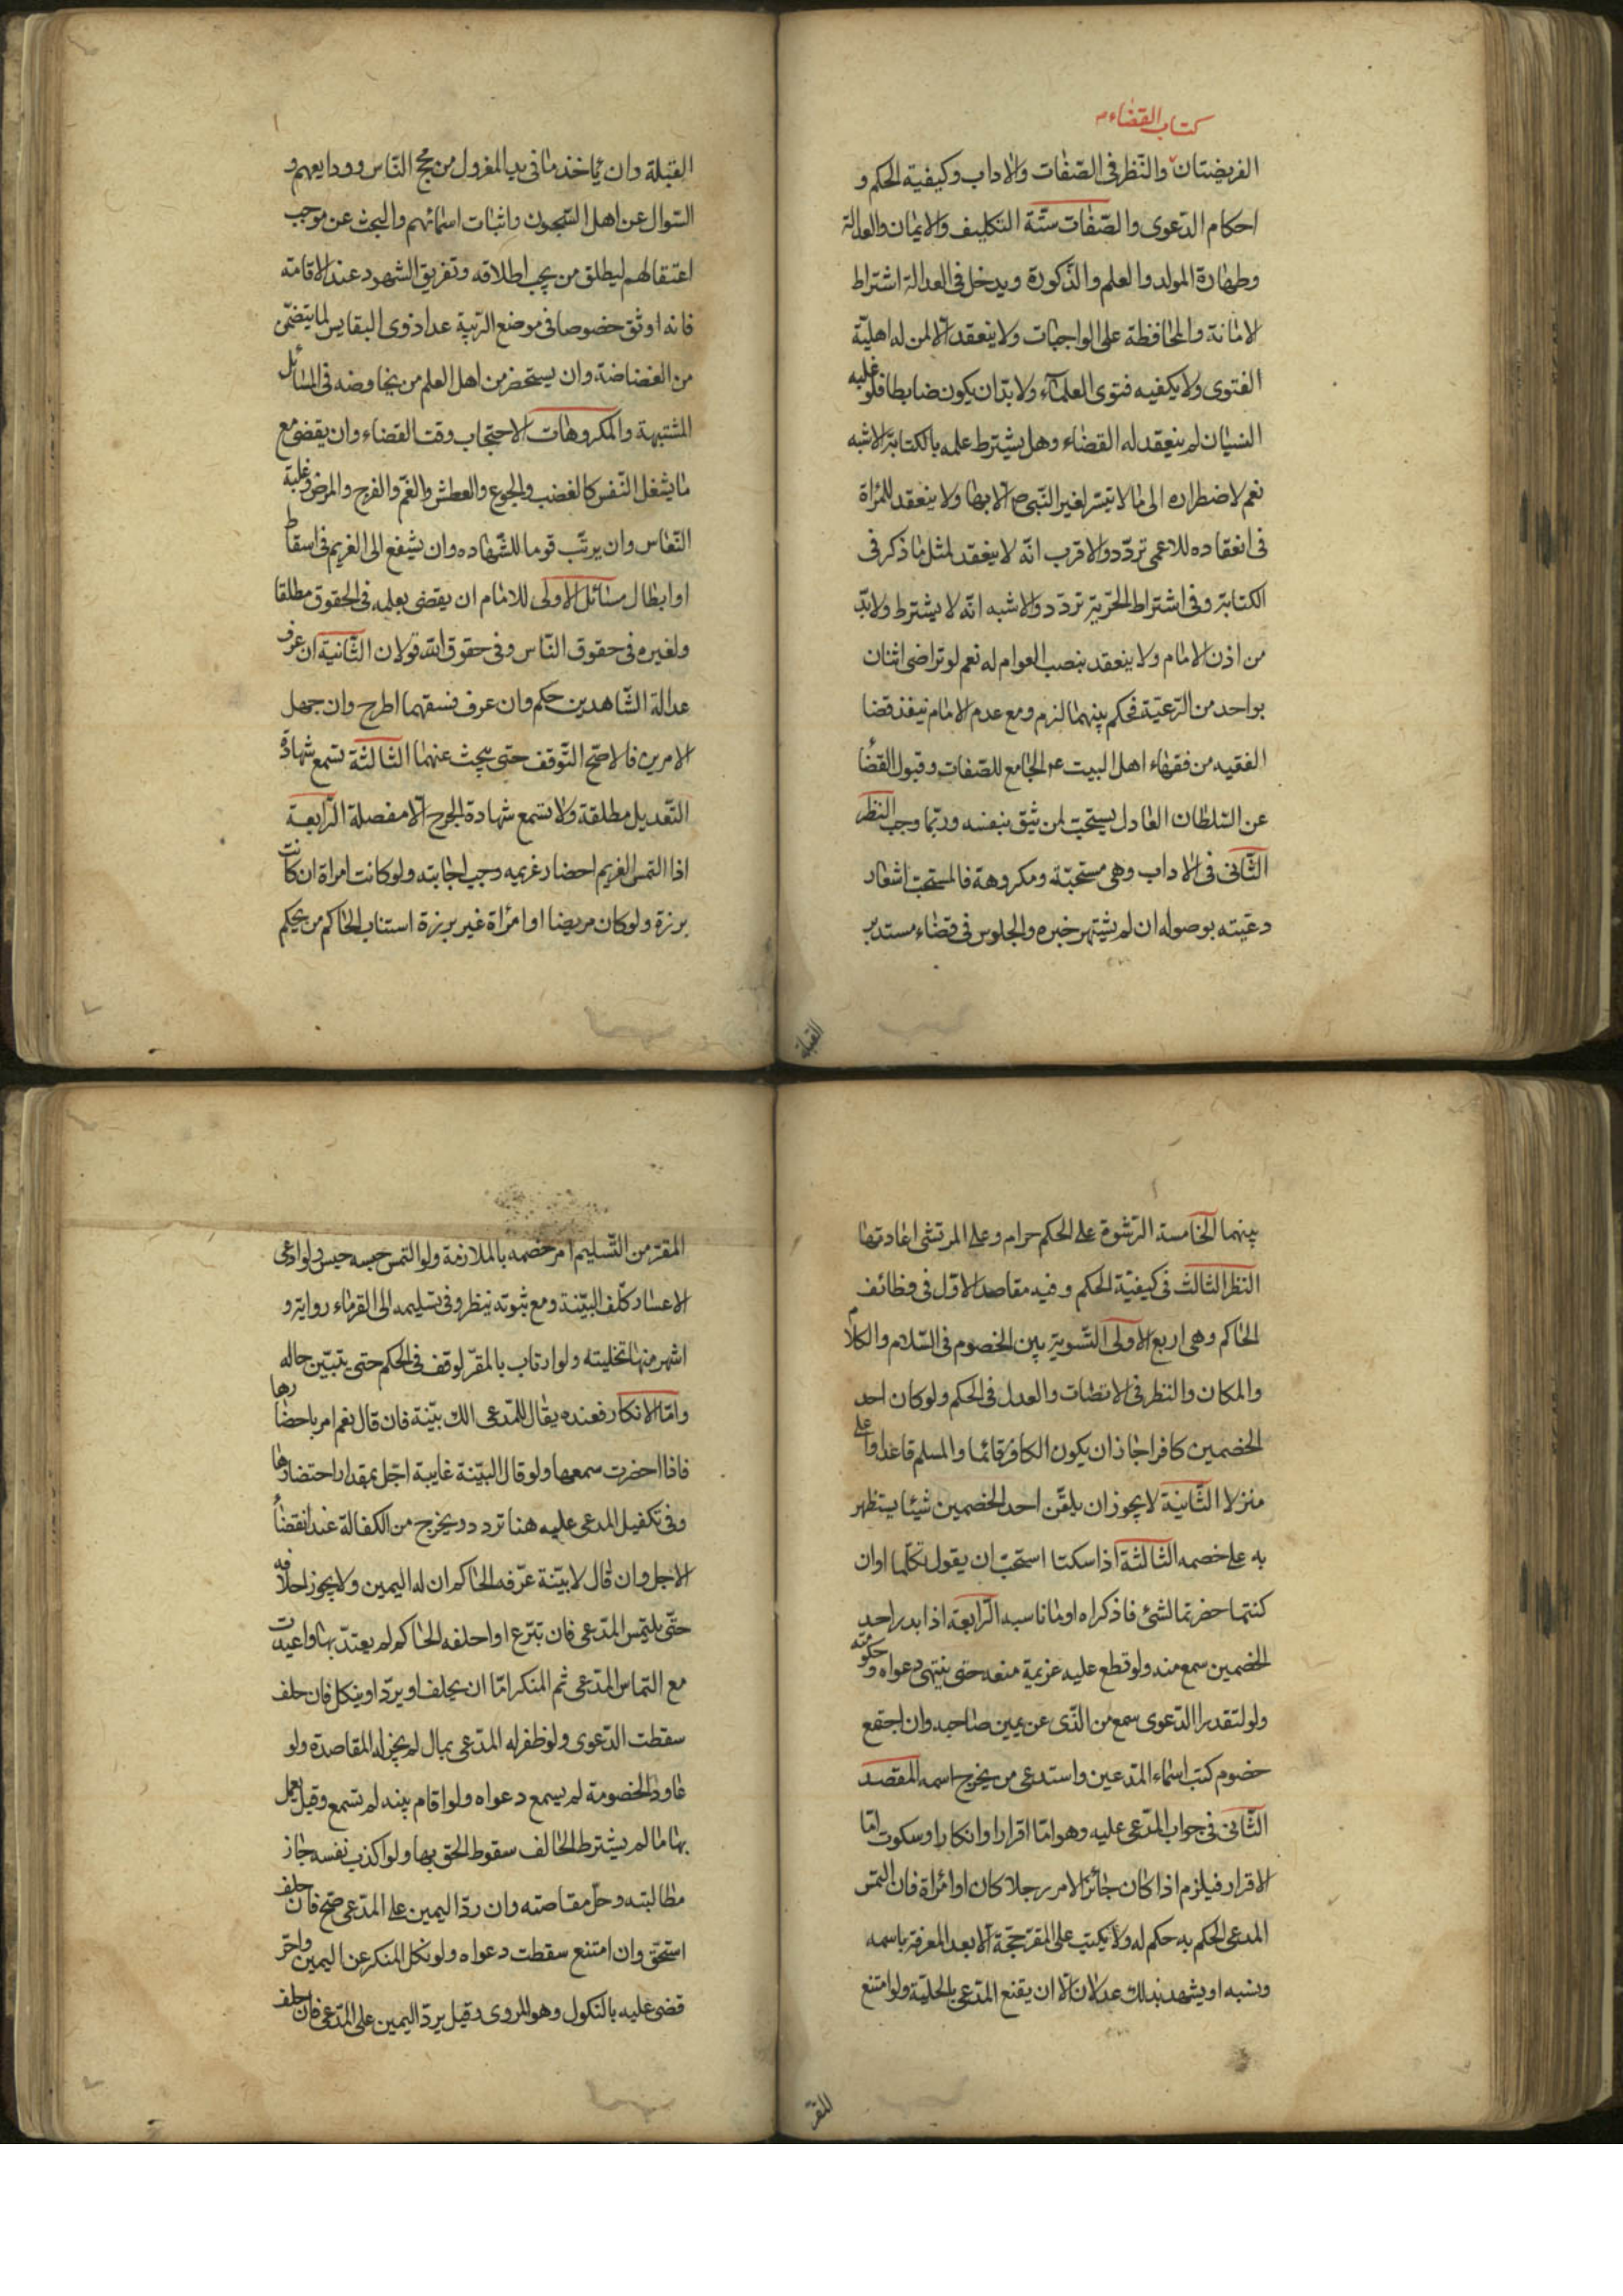 كتاب القضاء
الفريضتان والنظر فى الصفات والاداب وكيفية الحكم و
احكام الدعوى والصفات ستة التكليف والايمان والعدالة
وطهارة المولد والعلم والذكورة ويدخل فى العدالة اشتراط
الامانة والمحافظة على الواجبات ولا ينعقد الا لمن له اهلية
الفتوى ولا يكفيه فتوى العلماء ولا بد ان يكون ضابطا فلو غلبه
النسيان لم ينعقد له القضاء وهل يشترط علمه بالكتابة الاشبه
نعم لاضطراره الى ما لا يتيسر لغير النبى ص الا بها ولا ينعقد للمراة
فى انعقاده للاعمى تردد والاقرب انه لا ينعقد لمثل ما ذكر فى
الكتابة وفى اشتراط الحرية تردد والاشبه انه لا يشترط ولا بد
من اذن الامام ولا ينعقد بنصب العوام له نعم لو تراضى اثنان
بواحد من الرعية فحكم بينهما لزم ومع عدم الامام ينفذ قضا
الفقيه من فقهاء اهل البيت ع الجامع للصفات وقبول القضا
عن السلطان العادل يستحب لمن يثق بنفسه وربما وجب النظر
الثانى فى الاداب وهى مستحبة ومكروهة فالمستحب اشعار
رعيته بوصوله ان لم يشتهر خبره والجلوس فى قضاء مستدبر
القبلة
القبلة وان ياخذ ما فى يد المعزول من حجج الناس وودايعهم و
السوال عن اهل السجون واثبات اسمائهم والبحث عن موجب
اعتقالهم ليطلق من يجب اطلاقه وتفريق الشهود عند الاقامة
فانه اوثق خصوصا فى موضع الريبة عدا ذوى البقاير لما يتضمن
من الغضاضة وان يستحضر من اهل العلم من يخاوضه فى المسائل
المشتبهة والمكروهات الاحتجاب وقت القضاء وان يقضى مع
ما يشغل النفس كالغضب والجوع والعطش والغم والفرح والمرض وغلبة
النعاس وان يرتب قوما للشهاده وان يشفع الى الغريم فى اسقاط
او ابطال مسائل الاولى للامام ان يقضى بعلمه فى الحقوق مطلقا
ولغيره فى حقوق الناس وفى حقوق الله قولان الثانية ان عرف
عدالة الشاهدين حكم وان عرف فسقهما اطرح وان جهل
الامرين فالاصح التوقف حتى يبحث عنهما الثالثة تسمع شهادة
التعديل مطلقة ولا تسمع شهادة الجرح الا مفصلة الرابعة
اذا التمس الغريم احضار غريمه وجب اجابته ولو كانت امراة ان كانت
برزة ولو كان مريضا او امراة غير برزة استناب الحاكم من يحكم
بينهما الخامسة الرشوة على الحكم حرام وعلى المرتشى اعادتها
النظر الثالث فى كيفية الحكم وفيه مقاصد الاول فى وظائف
الحاكم وهى اربع الاولى التسوية بين الخصوم فى السلام والكلام
والمكان والنظر فى الانصات والعدل فى الحكم ولو كان احد
الخصمين كافرا جاز ان يكون الكافر قائما والمسلم قاعدا او اعلى
منزلا الثانية لا يجوز ان يلقن احد الخصمين شيئا يستظهر
به على خصمه الثالثة اذا سكتا استحب ان يقول تكلما او ان
كنتما حضرتما لشئ فاذكراه او ما ناسبه الرابعة اذا بدر احد
الخصمين سمع منه ولو قطع عليه غريمه منعه حتى ينتهى دعواه و حكومته
ولو ابتدرا الدعوى سمع من الذى عن يمين صاحبه وان اجتمع
خصوم كتب اسماء المدعين واستدعى من يخرج اسمه المقصد
الثانى فى جواب المدعى عليه وهو اما اقرار او انكار او سكوت اما
الاقرار فيلزم اذا كان جائز الامر رجلا كان او امراة فان التمس
المدعى الحكم به حكم له ولا يكتب على المقر حجة الا بعد المعرفة باسمه
ونسبه او يشهد بذلك عدلان الا ان يقنع المدعى بالحلية ولو امتنع
المقر
المقر من التسليم امر خصمه بالملازمة ولو التمس حبسه حبس ولو ادعى
الاعسار كلف البينة ومع ثبوته ينظر وفى تسليمه الى الغرماء رواية و
اشهر منها تخليته ولو ارتاب بالمقر لوقف فى الحكم حتى يتبين حاله
واما الانكار فعنده يقال للمدعى الك بينة فان قال نعم امر باحضارها
فاذا احضرت سمعها ولو قال البينة غايبة اجل بمقدار احضارها
وفى تكفيل المدعى عليه هنا تردد ويخرج من الكفالة عند انقضاء
الاجل وان قال لا بينة عرفه الحاكم ان له اليمين ولا يجوز احلافه
حتى يلتمس المدعى فان تبرع او احلفه الحاكم لم يعتد بها واعيدت
مع التماس المدعى ثم المنكر اما ان يحلف او يرد او ينكل فان حلف
سقطت الدعوى ولو ظفر له المدعى بمال لم يجز له المقاصة ولو
عاود الخصومة لم يسمع دعواه ولو اقام بينة لم تسمع وقيل يعمل
بها ما لم يشترط الحالف سقوط الحق بها ولو اكذب نفسه جاز
مطالبته وحل مقاصته وان رد اليمين على المدعى صح فان حلف
استحق وان امتنع سقطت دعواه ولو نكل المنكر عن اليمين واصر
قضى عليه بالنكول وهو المروى وقيل يرد اليمين على المدعى فان حلف